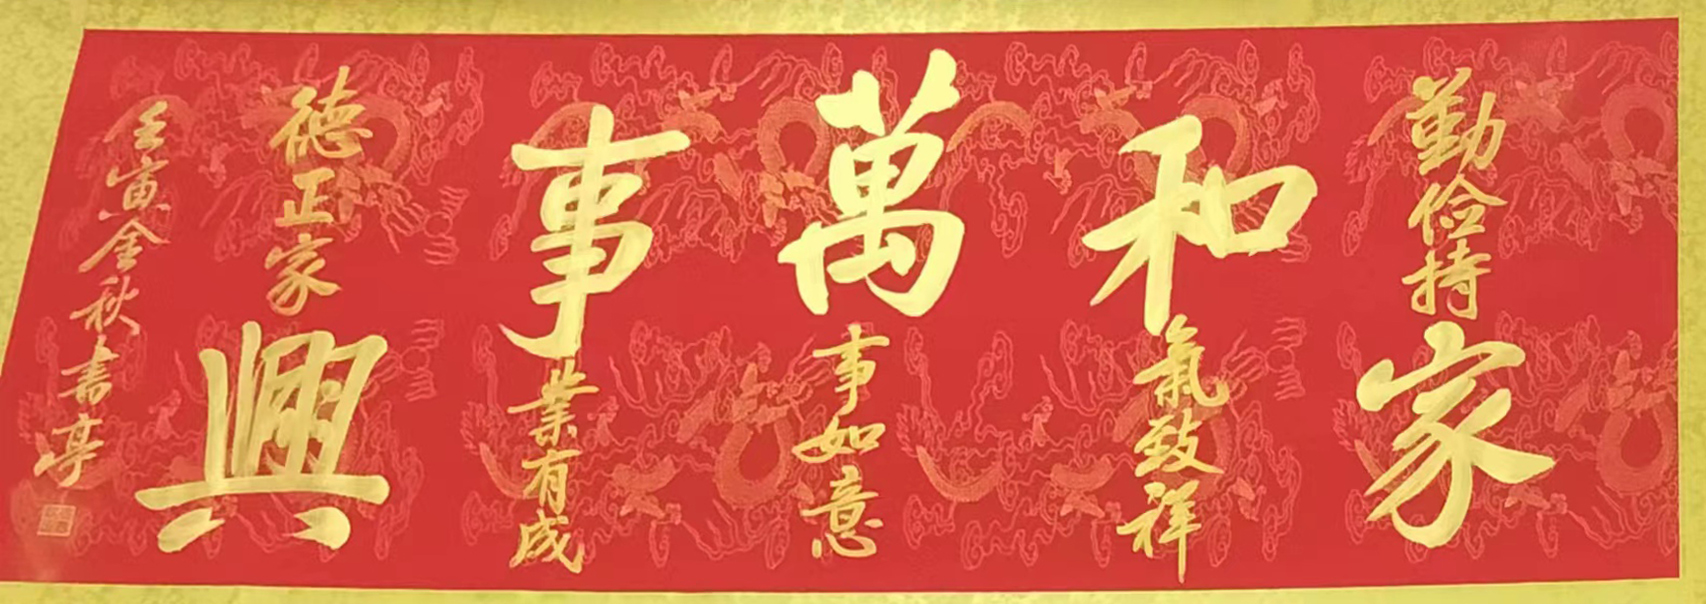 勤俭持家
和氣致祥
萬事如意
事業有成
德正家興
壬寅金秋書亭